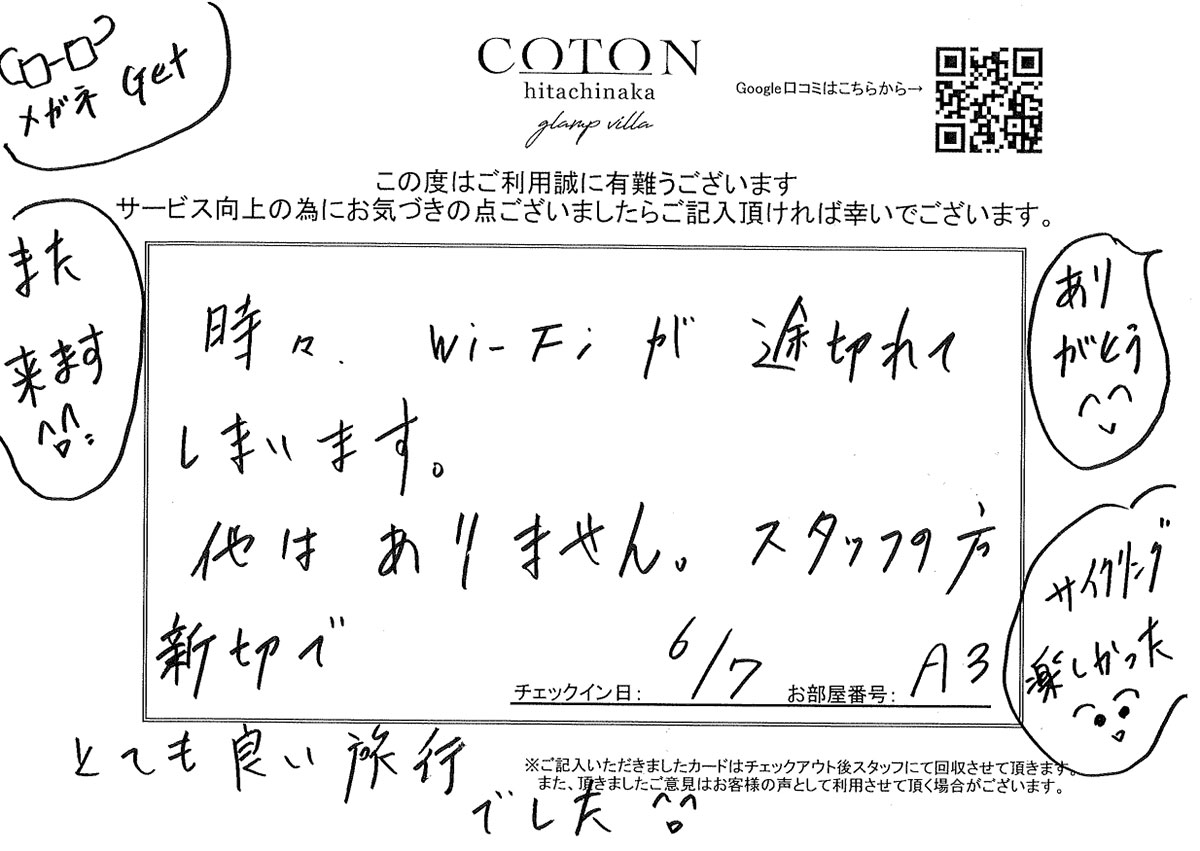 メガネ Get
COTON
hitachinaka
glamp villa
Google口コミはこちらから→
この度はご利用誠に有難うございます
サービス向上の為にお気づきの点ございましたらご記入頂ければ幸いでございます。
また
来ます
時々、Wi-Fiが途切れて
しまいます。
他はありません。スタッフの方
新切で
チェックイン日: 6/7 お部屋番号: A3
とても良い旅行
でした
あり
がとう
サイクリング
楽しかった
※ご記入いただきましたカードはチェックアウト後スタッフにて回収させて頂きます。
また、頂きましたご意見はお客様の声として利用させて頂く場合がございます。